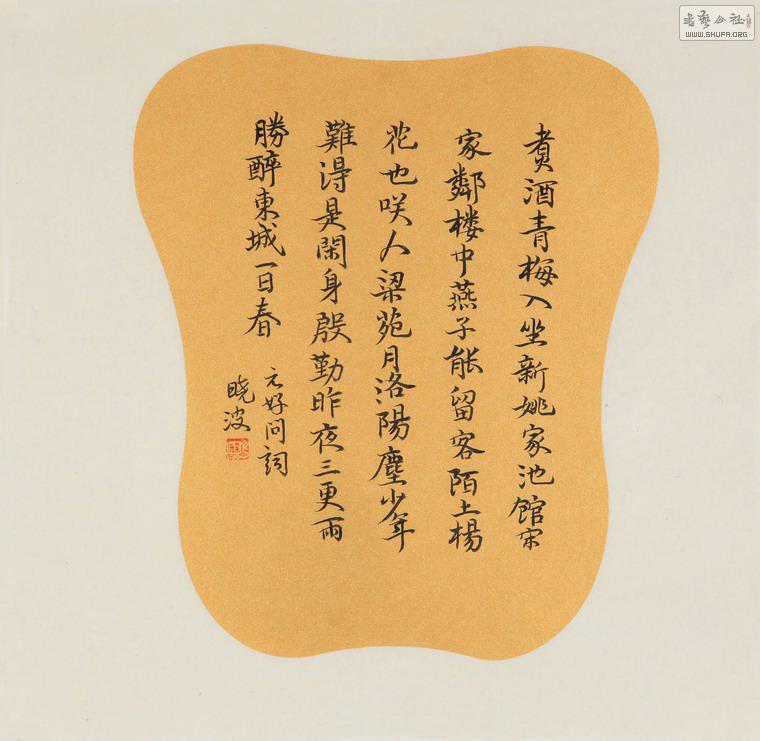 煮酒青梅入坐新姚家池館宋
家鄰楼中燕子能留客陌上楊
花也咲人梁苑月洛陽塵少年
難得是閑身殷勤昨夜三更雨
勝醉東城一日春
元好問詞
晓波
書藝公社
WWW.SHUFA.ORG